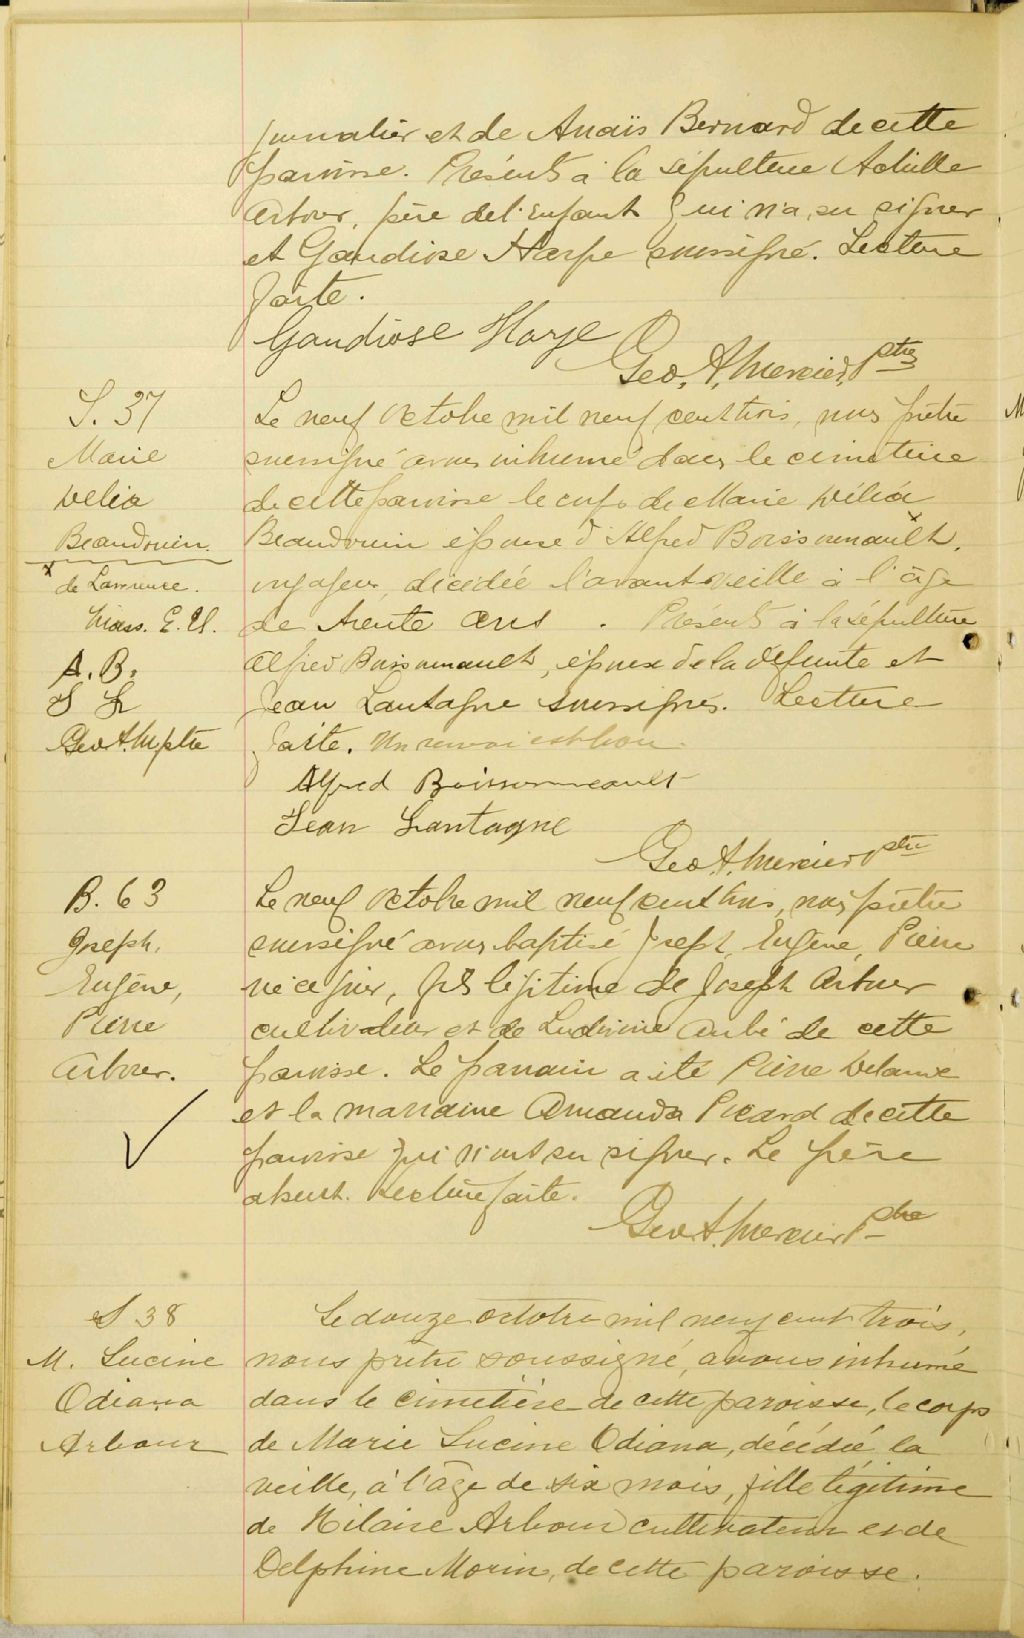 journalier et de Anaïs Bernard de cette
paroisse. Présents à la sépulture Achille
Arbour, père de l'enfant qui n'a su signer
et Gaudiose Harpe soussigné. Lecture
faite.
Gaudiose Harpe
Geo. A. Mercier Ptre
S. 37
Marie
Delia
Beaudouin.
x de Lawrence.
Mass. E. U.
A. B.
J L
Geo A. M ptre
Le neuf octobre mil neuf cent trois, nous prêtre
soussigné avons inhumé dans le cimetière
de cette paroisse le corps de Marie Délia
Beaudouin épouse d'Alfred Boissonnault, x
voyageur, décédée l'avant veille à l'âge
de trente ans. Présents à la sépulture
Alfred Boissonnault, époux de la défunte et
Jean Lantagne soussignés. Lecture
faite. Un renvoi est bon.
Alfred Boissonneault
Jean Lantagne
Geo. A. Mercier Ptre
B. 63
Joseph,
Eugène,
Pierre
Arbour.
Le neuf octobre mil neuf cent trois, nous prêtre
soussigné avons baptisé Joseph, Eugène, Pierre
né ce jour, fils légitime de Joseph Arbour
cultivateur et de Ludivine Aubé de cette
paroisse. Le parrain a été Pierre
et la marraine Amanda Picard de cette
paroisse qui n'ont su signer. Le père
absent. Lecture faite.
Geo A. Mercier Ptre
S 38
M. Lucine
Odiana
Arbour
Le douze octobre mil neuf cent trois,
nous prêtre soussigné, avons inhumé
dans le cimetière de cette paroisse, le corps
de Marie Lucine Odiana, décédée la
veille, à l'âge de six mois, fille légitime
de Hilaire Arbour cultivateur et de
Delphine Morin, de cette paroisse.